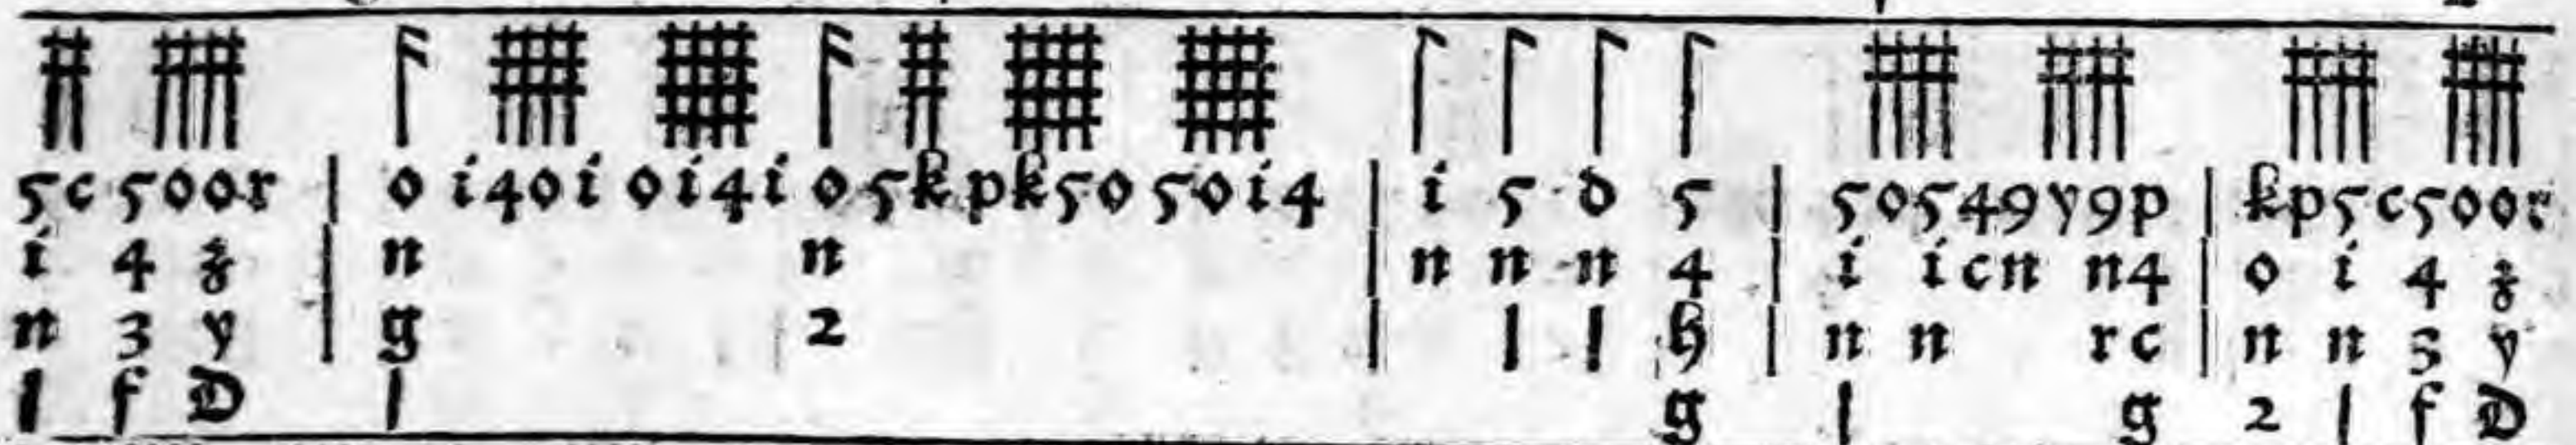 5c 500r | o i40i 0i4i o 5kpk50 50i4 | i 5 d 5 | 50549y9p | kp5c500r
i 4 z | n n | n n n 4 | i icn n4 | o i 4 z
n 3 y | g 2 | l l h | n n rc | n n 3 y
l f D l g l g 2 l f D